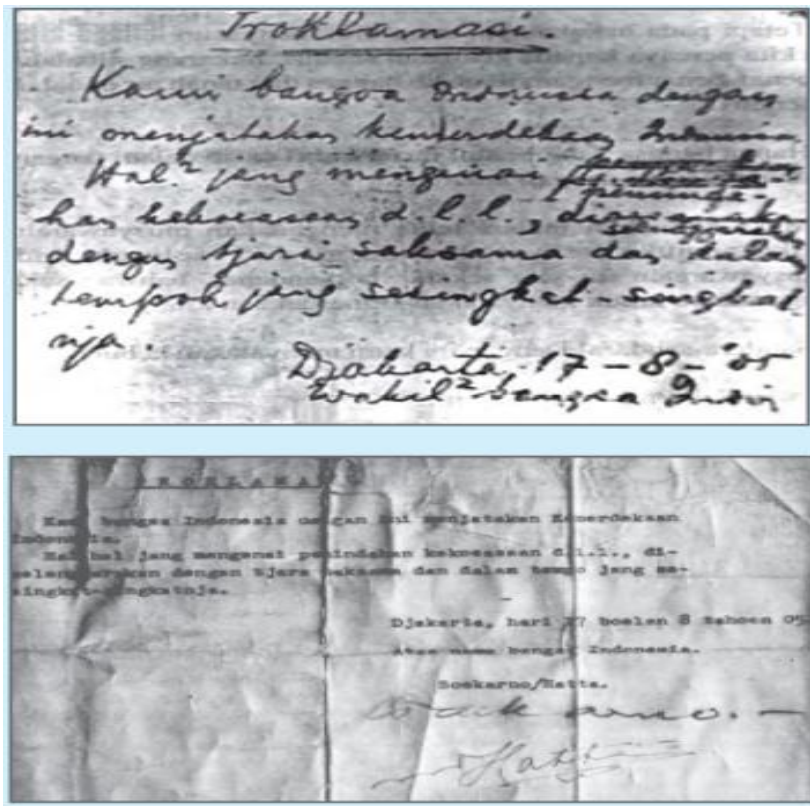 Proklamasi.
Kami bangsa Indonesia dengan
ini menjatakan kemerdekaan Indonesia
Hal² jang mengenai
peminda-
han kekoeasaan d.l.l., diselenggarakan
dengan tjara saksama dan dalam
tempoh jang sesingkat-singkat
nja.
Djakarta, 17 - 8 - '05
Wakil² bangsa Indon
PROKLAMASI
Kami bangsa Indonesia dengan ini menjatakan Kemerdekaan
Indonesia.
Hal hal jang mengenai pemindahan kekoeasaan d.l.l., di-
selenggarakan dengan tjara saksama dan dalam tempo jang se-
singkat-singkatnja.
Djakarta, hari 17 boelan 8 tahoen 05
Atas nama bangsa Indonesia.
Soekarno/Hatta.
Soekarno.-
Hatta